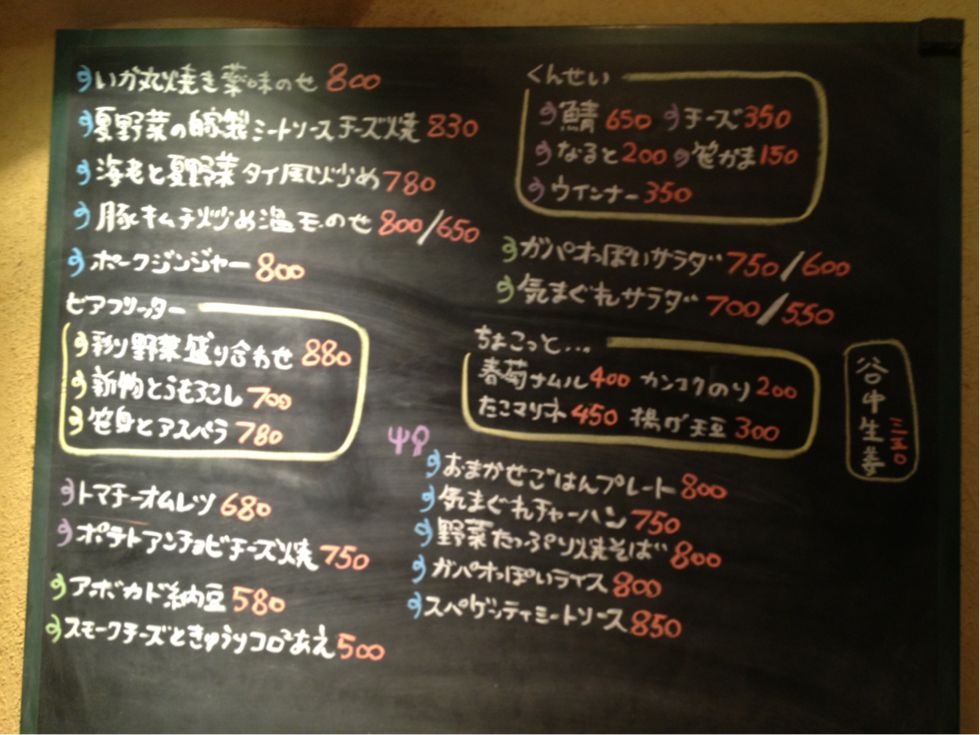 いか丸焼き薬味のせ 800
夏野菜の自家製ミートソースチーズ焼 830
海老と夏野菜タイ風炒め 780
豚キムチ炒め温玉のせ 800/650
ポークジンジャー 800
ビアフリッター
彩り野菜盛り合わせ 880
新物とうもろこし 700
笹身とアスパラ 780
トマチーオムレツ 680
ポテトアンチョビチーズ焼 750
アボカド納豆 580
スモークチーズときゅうりコロコロあえ 500
くんせい
鯖 650 チーズ 350
なると 200 笹かま 150
ウインナー 350
ガパオっぽいサラダ 750/600
気まぐれサラダ 700/550
ちょこっと...
春菊ナムル 400 カンコクのり 200
たこマリネ 450 揚げ天豆 300
おまかせごはんプレート 800
気まぐれチャーハン 750
野菜たっぷり焼そば 800
ガパオっぽいライス 800
スパゲッティミートソース 850
谷中生姜 三五〇